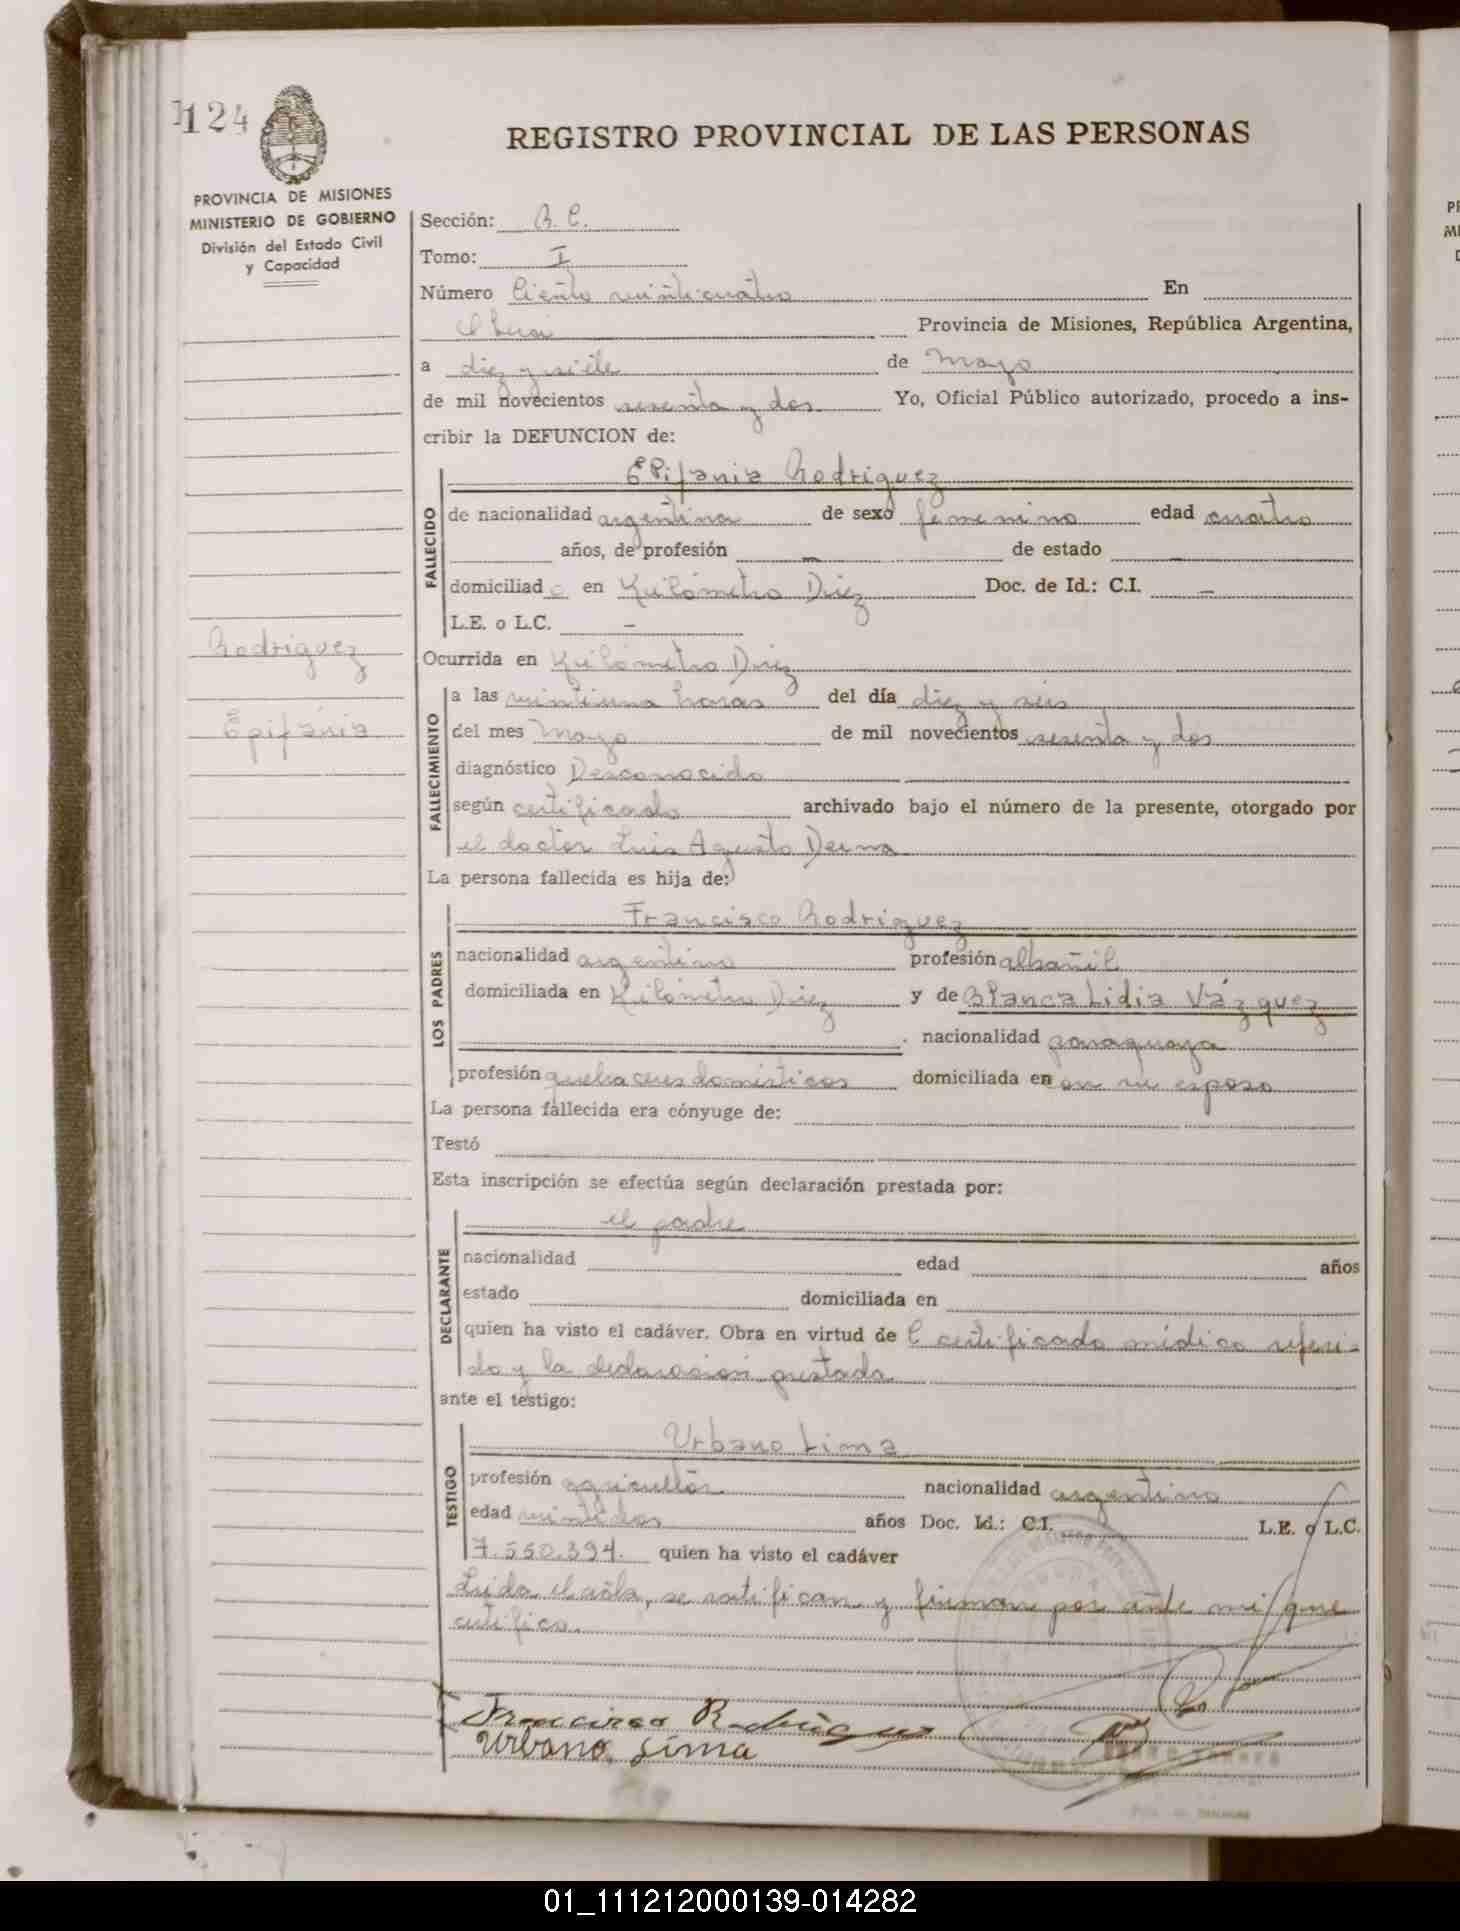 124
REGISTRO PROVINCIAL DE LAS PERSONAS
PROVINCIA DE MISIONES
MINISTERIO DE GOBIERNO
División del Estado Civil
y Capacidad
Sección: R. C.
Tomo: I
Número Ciento veinticuatro En
Oberá Provincia de Misiones, República Argentina,
a diez y siete de Mayo
de mil novecientos sesenta y dos Yo, Oficial Público autorizado, procedo a ins-
cribir la DEFUNCION de:
FALLECIDO
EPifania Rodriguez
de nacionalidad argentina de sexo femenino edad cuatro
años, de profesión — de estado —
domiciliad o en Kilómetro Diez Doc. de Id.: C.I. —
L.E. o L.C. —
Rodriguez
Epifania
Ocurrida en Kilómetro Diez
FALLECIMIENTO
a las veintiuna horas del día diez y seis
del mes Mayo de mil novecientos sesenta y dos
diagnóstico Desconocido
según certificado archivado bajo el número de la presente, otorgado por
el doctor Luis Agusto Derna
La persona fallecida es hija de:
LOS PADRES
Francisco Rodriguez
nacionalidad argentino profesión albañil
domiciliada en Kilómetro Diez y de Blanca Lidia Vázquez
nacionalidad paraguaya
profesión quehaceres domésticos domiciliada en con su esposo
La persona fallecida era cónyuge de:
Testó
Esta inscripción se efectúa según declaración prestada por:
DECLARANTE
el padre
nacionalidad edad años
estado domiciliada en
quien ha visto el cadáver. Obra en virtud de l certificado médico referi-
do y la declaración prestada
ante el testigo:
TESTIGO
Urbano Lima
profesión agricultor nacionalidad argentino
edad veintidos años Doc. Id.: C.I. L.E. o L.C.
7.550.394. quien ha visto el cadáver
Leida el acta, se ratifican y firman por ante mi que
certifico.
Francisco Rodriguez
Urbano Lima
01_111212000139-014282